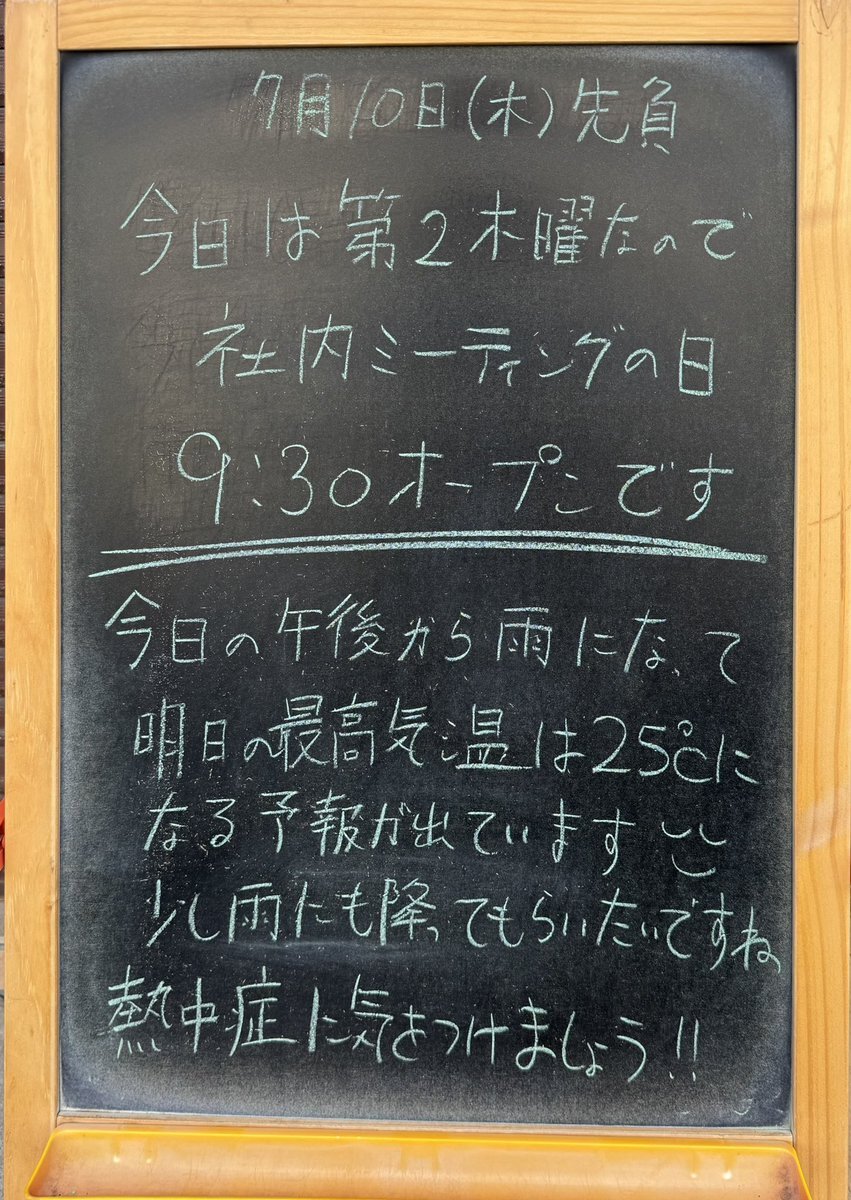 7月10日(木)先負
今日は第2木曜なので
社内ミーティングの日
9:30オープンです
今日の午後から雨になって
明日の最高気温は25℃に
なる予報が出ています
少し雨にも降ってもらいたいですね
熱中症に気をつけましょう!!